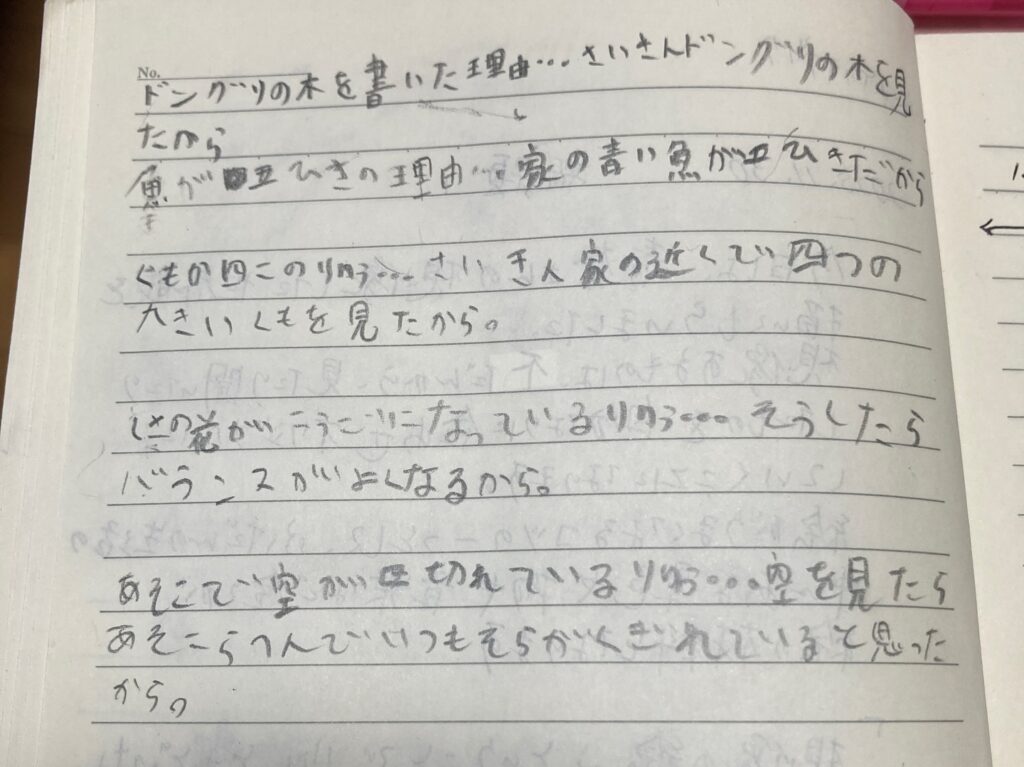 No.
ドングリの木を書いた理由…さいきんドングリの木を見
たから
魚が五ひきの理由…家の青い魚が五ひきだから
くもが四このりゆう…さいきん家の近くで四つの
大きいくもを見たから。
の花がこうごにになっているりゆう…そうしたら
バランスがよくなるから。
あそこで空が切れているりゆう…空を見たら
あそこらへんでいつもそらがくぎれていると思った
から。